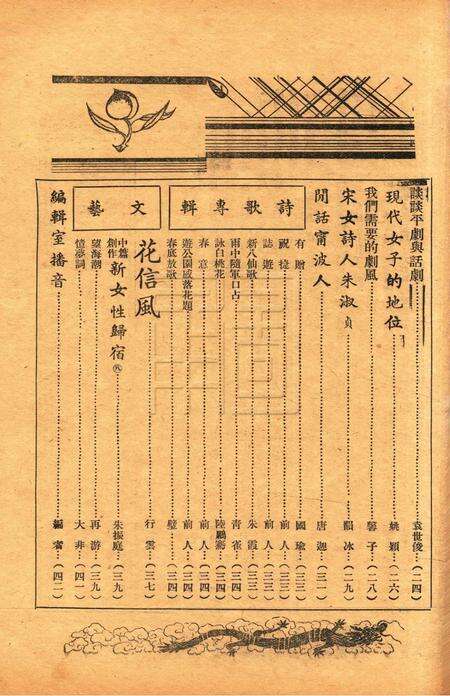 談談平劇與話劇……袁世俊…(二四)
現代女子的地位……姚穎…(二六)
我們需要的劇風……馨子…(二八)
宋女詩人朱淑貞……韻冰…(二九)
閒話甯波人……唐迦…(三一)
詩歌專輯
有贈……國瑜…(三三)
祝捷……前人…(三三)
誌遊……前人…(三三)
新八仙歌……朱霞…(三三)
雨中隨軍口占……青雀…(三四)
詠白桃花……陸鵬…(三四)
春意……前人…(三四)
遊公園感落花題……前人…(三四)
春底放歌……璧…(三四)
文藝
花信風……行雲…(三七)
中篇創作 新女性歸宿㈧……朱振庭…(三九)
望海潮……再游…(三九)
憶夢詞……大非…(四一)
編輯室播音……編者…(四二)